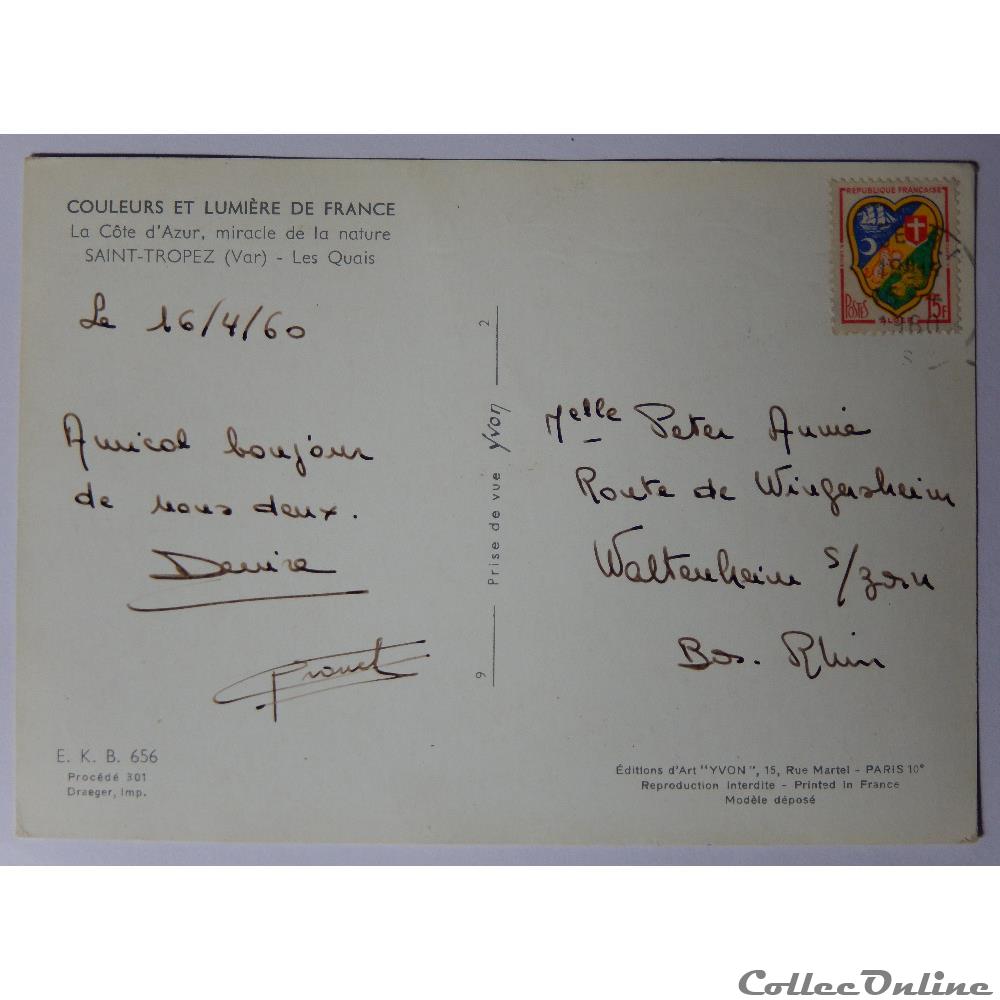 COULEURS ET LUMIÈRE DE FRANCE
La Côte d'Azur, miracle de la nature
SAINT-TROPEZ (Var) - Les Quais
Le 16/4/60
Amical boujour
de nous deux.
Denise
9 Prise de vue Yvon 2
REPUBLIQUE FRANÇAISE
POSTES 15F
ALGER
1960
Melle Peter Annie
Route de Wingersheim
Waltenheim s/zorn
Bas. Rhin
E. K. B. 656
Procédé 301
Draeger, Imp.
Éditions d'Art "YVON", 15, Rue Martel - PARIS 10e
Reproduction interdite - Printed in France
Modèle déposé
CollecOnline